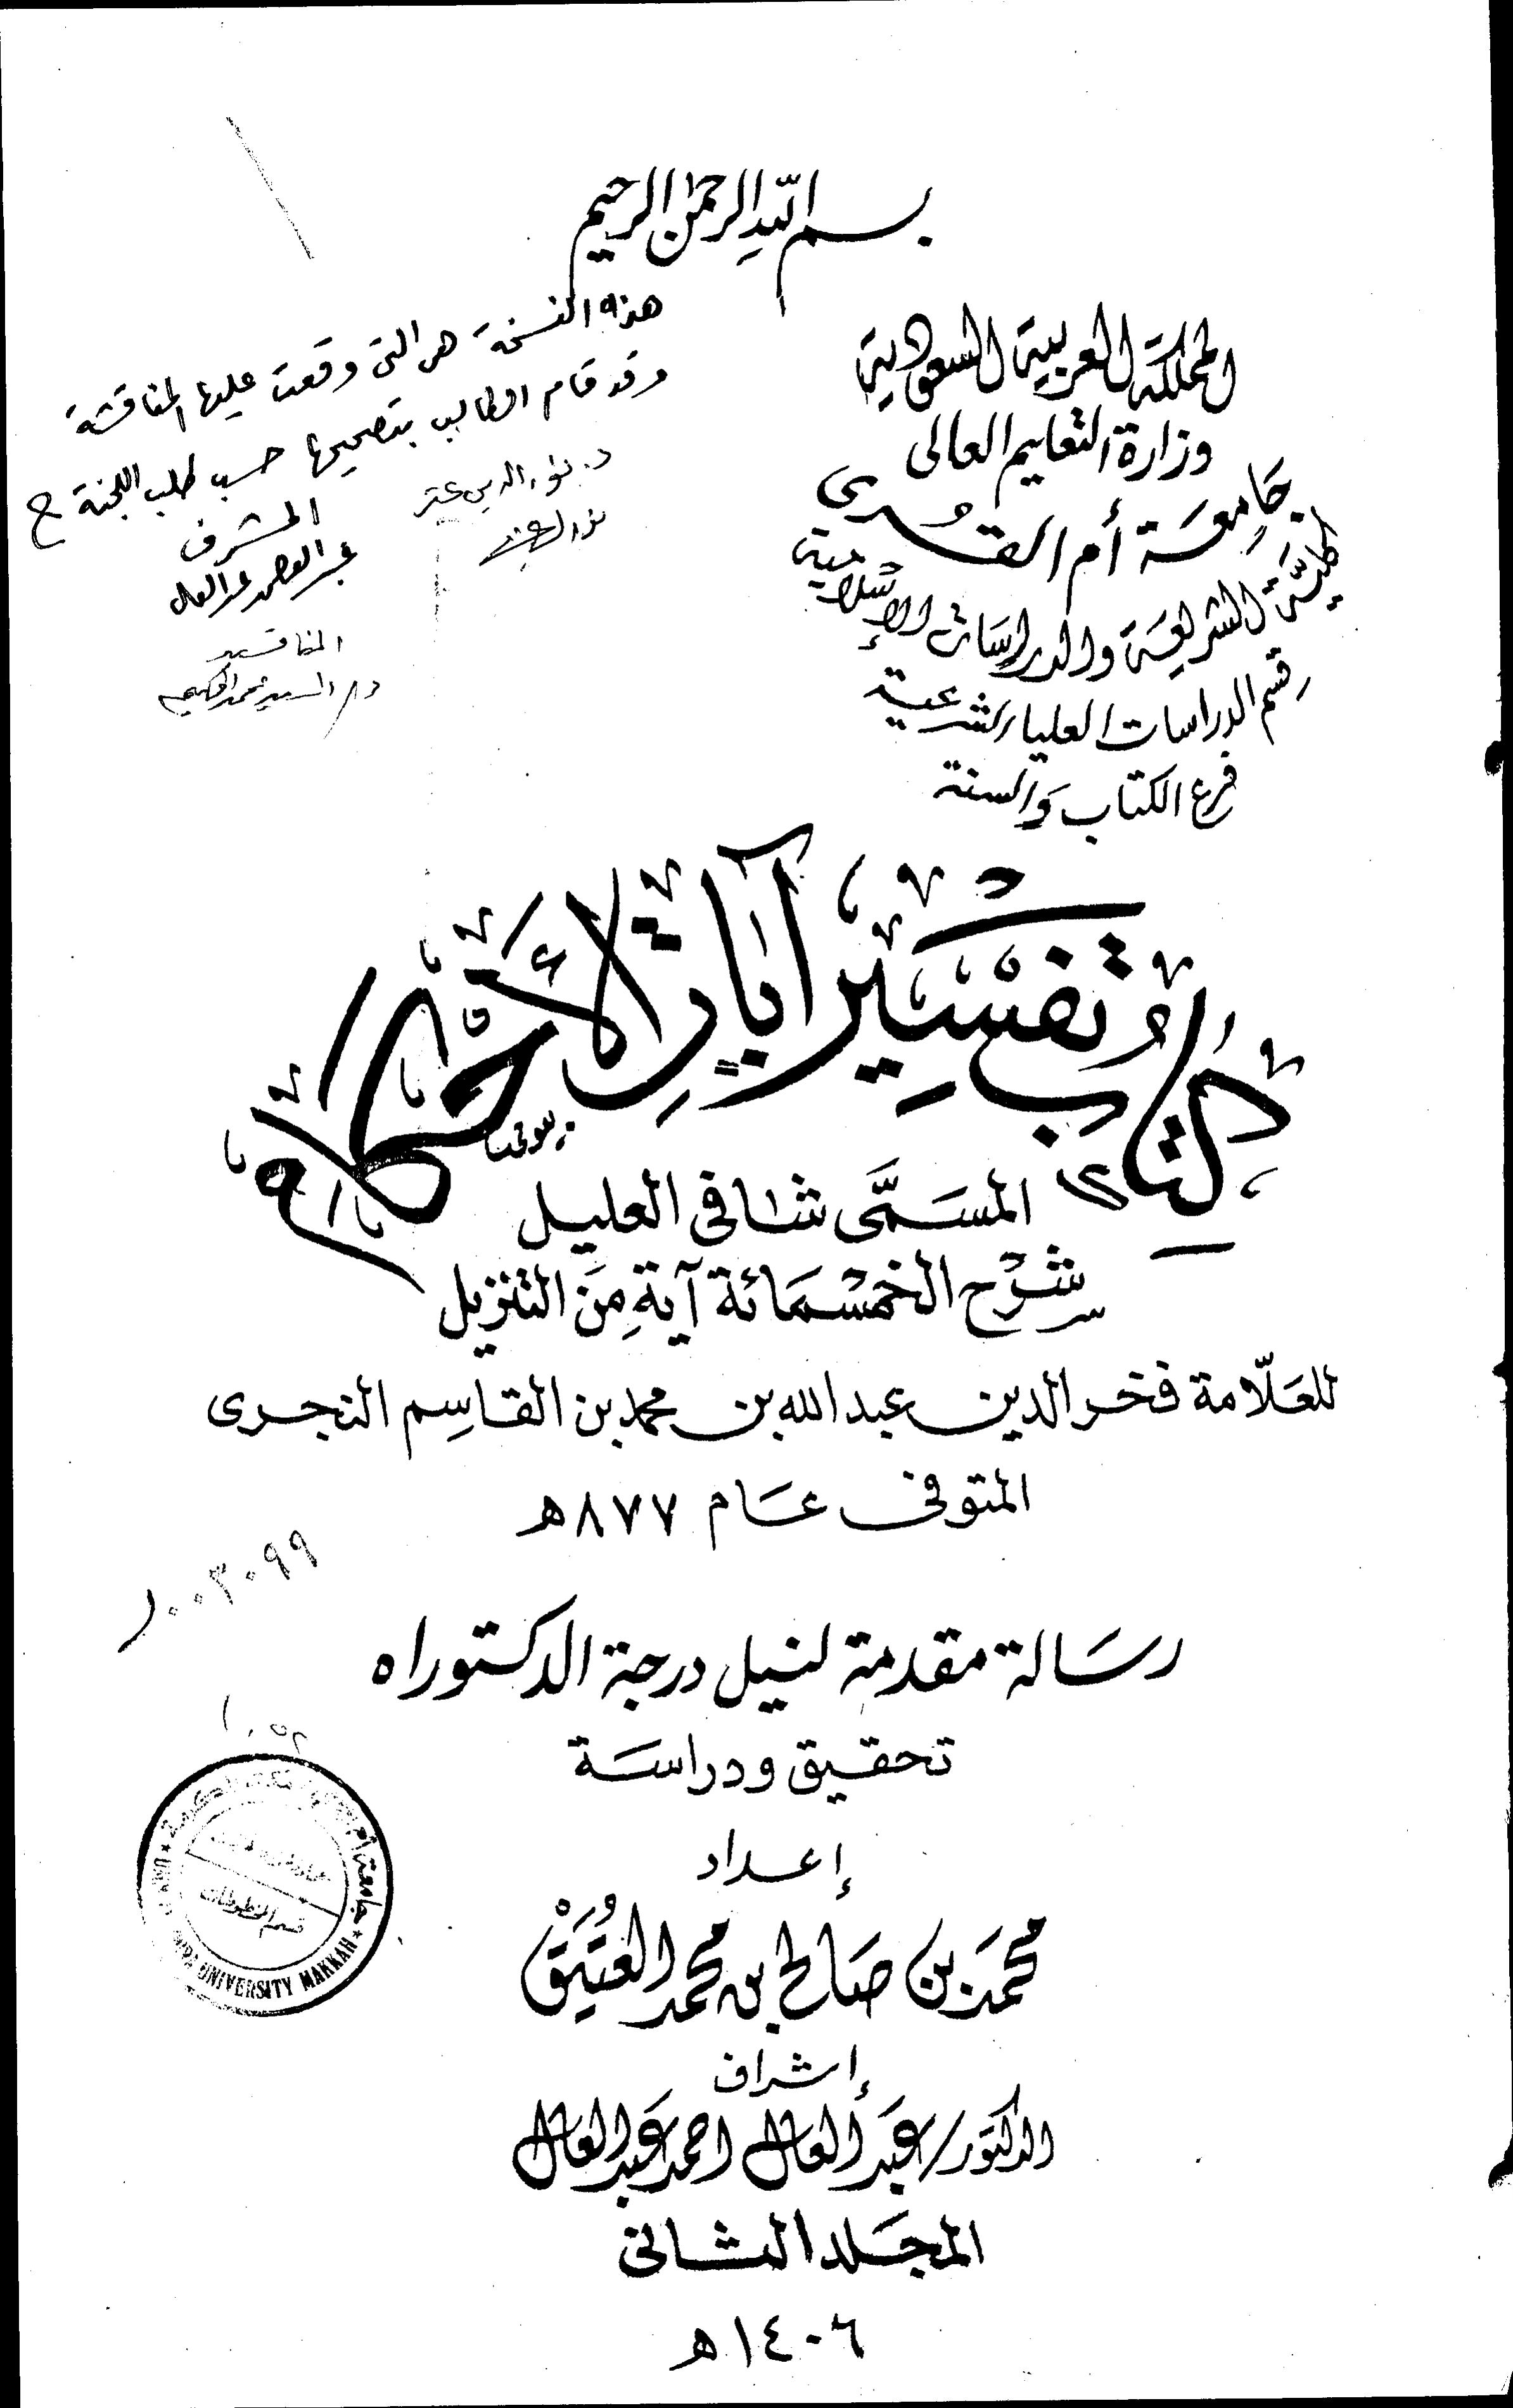 بسم الله الرحمن الرحيم
المملكة العربية السعودية
وزارة التعليم العالى
جَامِعَة أم القُرى
كليَّة الشريعَة والدراسَات الإسْلامية
قسم الدراسات العليا الشرعية
فرع الكتاب وَالسنة
هذه النسخة هى التى وقعت عليها المناقشة
وقد قام الطالب بتصحيحها حسب طلب اللجنة
المشرف
د. نور الدين عتر
المناقش
كتاب تفسير آيات الأحكام
المسَمَّى شافى العليل
شرْح الخمسْمَائة آيةِ مِنَ التنزيل
للعَلّامة فخر الدين عبد الله بن محمد بن القاسِم النجرى
المتوفى عَام ٨٧٧ هـ
١٠٠٣٠٩٩
رسَالة مقدمة لنيل درجة الدكتوراه
١٠٥٢
تحقيق ودراسَة
إعداد
محمد بن صَالح بن محمد العُتَيَقْ
إشراف
الدكتور/ عَبد العال احمد عَبد العال
المجَلد الثانى
١٤٠٦ هـ
جامعة أم
قسم المخطوطات
UNIVERSITY MAKKAH